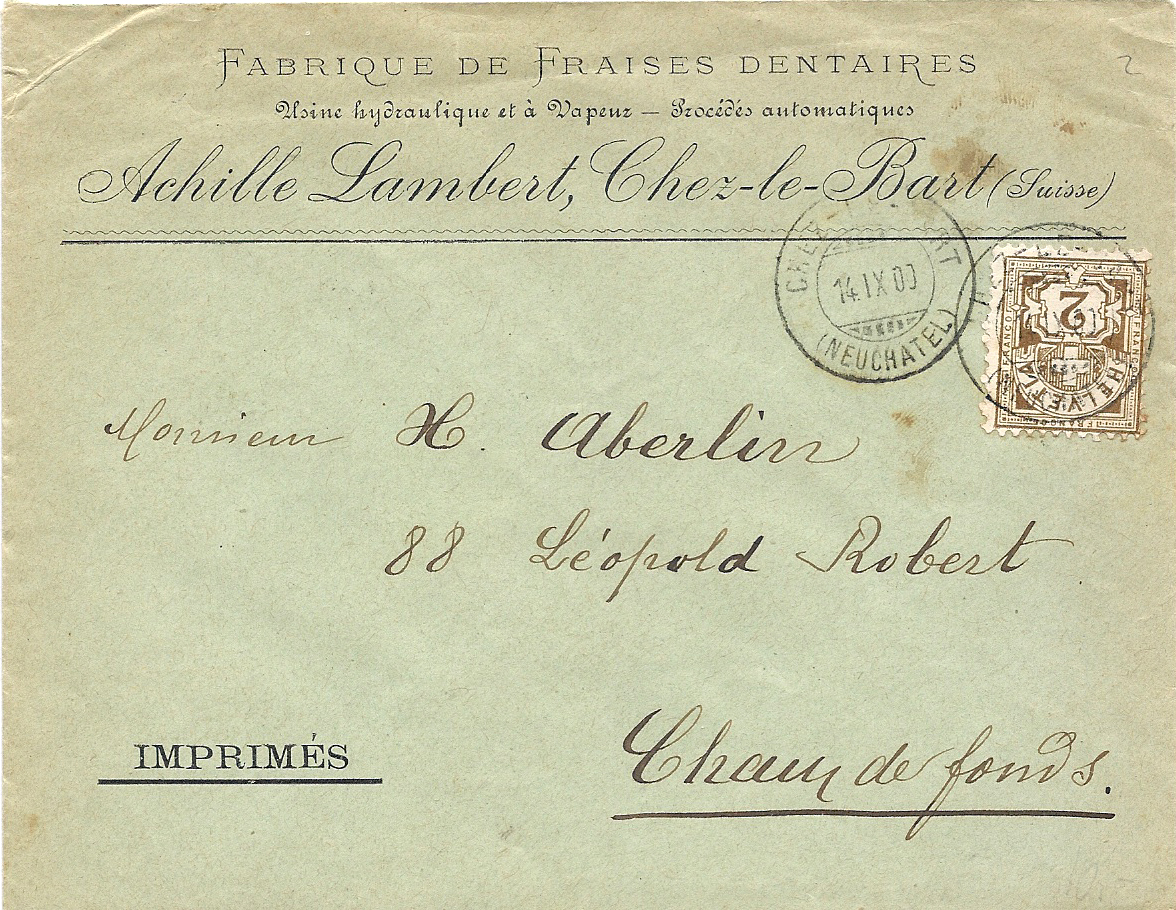 FABRIQUE DE FRAISES DENTAIRES
Usine hydraulique et à Vapeur — Procédés automatiques
Achille Lambert, Chez-le-Bart (Suisse)
14.IX 00
(NEUCHATEL)
2
FRANCO
FRANCO
FRANCO
HELVETIA
Monsieur H. Aberlin
88 Léopold Robert
IMPRIMÉS
Chaux de fonds.